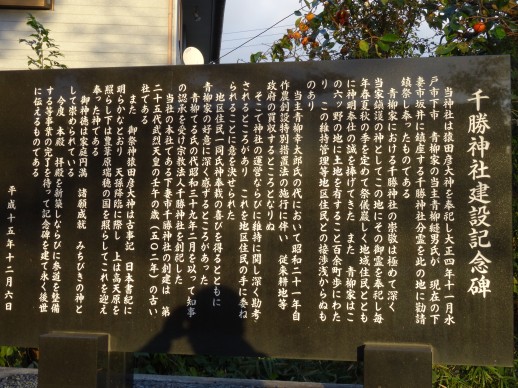 千勝神社建設記念碑
当神社は猿田彦大神を奉祀し大正四年十一月水
戸市下市 青柳家の当主青柳縫男氏が 現在の下
妻市坂井に鎮座する千勝神社分霊を此の地に勧請
鎮祭し奉つたものであります
青柳家における千勝神社の崇敬は極めて深く
当家鎮護の神としてこの地にその御霊を奉祀し毎
年春夏秋の季を定めて祭儀厳しく地域住民ともども
に神明奉仕の誠を捧げて来た また 青柳家はこ
の六ッ野の地に土地を有すること百余町歩にわた
り この維持管理等地区住民との接渉浅からぬも
のあり
当主青柳幸太郎氏の代において 昭和二十一年自
作農創設特別措置法の施行に伴い 従来耕地等
政府の買収するところとなりぬ
そこで神社の運営ならびに維持に関し深く勘考
されるところがあり これを地区住民の手に委ね
られることに意を決せられた
地区住民一同氏神奉載の喜びを得るとともに
青柳家の好意に深く感ずるところがあった
青柳てる氏の代昭和三十九年二月を以って知事
の認承を受け宗教法人千勝神社を創祀した
当社の本社である下妻市千勝神社の創建は 第
二十五代武烈天皇の壬午の歳(五〇二年)の古い
社である
また 御祭神猿田彦大神は古事記 日本書紀に
明らかなとおり 天孫降臨に際し 上は高天原を
照らし下は豊葦原瑞穂の国を照らしてこれを迎え
奉つた大神である
御神徳は家庭円満 諸願成就 みちびきの神と
して崇められている
今度 本殿 拝殿を新築しならびに参道を整備
する等事業の完了を待って記念碑を建て永く後世
に伝えるものである
平成十五年十二月六日